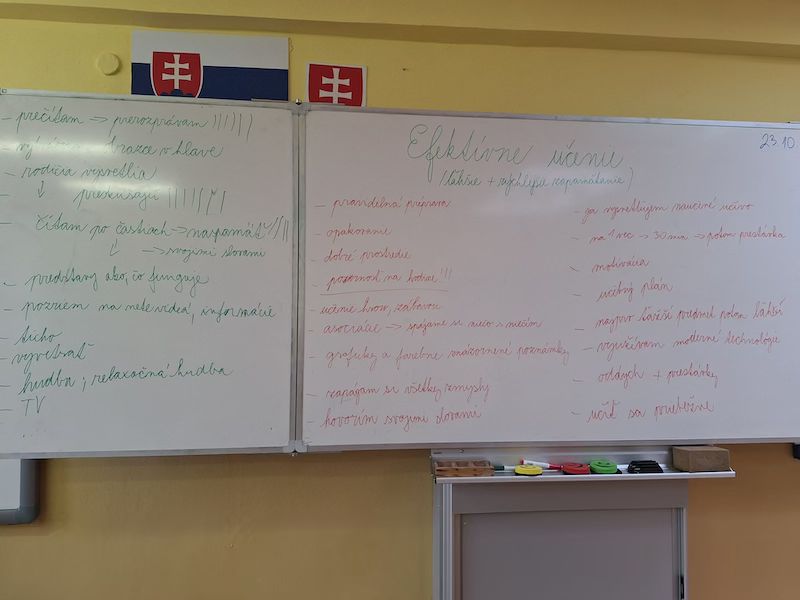 – prečítam → prerozprávam ||||||
obrazce v hlave
– rodičia vysvetlia
↓ preskúšajú
– čítam po častiach → naspamäť
↓ → svojimi slovami
– predstavy ako, čo funguje
– pozriem na nete videá, informácie
– ticho
– vyvetrať
– hudba, relaxačná hudba
– TV
Efektívne učenie
(ľahšie + rýchlejšie zapamätanie)
23.10.
– pravidelná príprava
– opakovanie
– dobré prostredie
– pozornosť na hodine!!!
– učenie hrou, zábavou
– asociácie → spájame si niečo s niečím
– graficky a farebne znázornené poznámky
– zapájam si všetky zmysly
– hovorím svojimi slovami
– ja vysvetľujem naučené učivo
– na 1 vec → 30 min → potom prestávka
– motivácia
– učebný plán
– najprv ťažší predmet potom ľahší
– využívam moderné technológie
– oddych + prestávky
– učiť sa priebežne